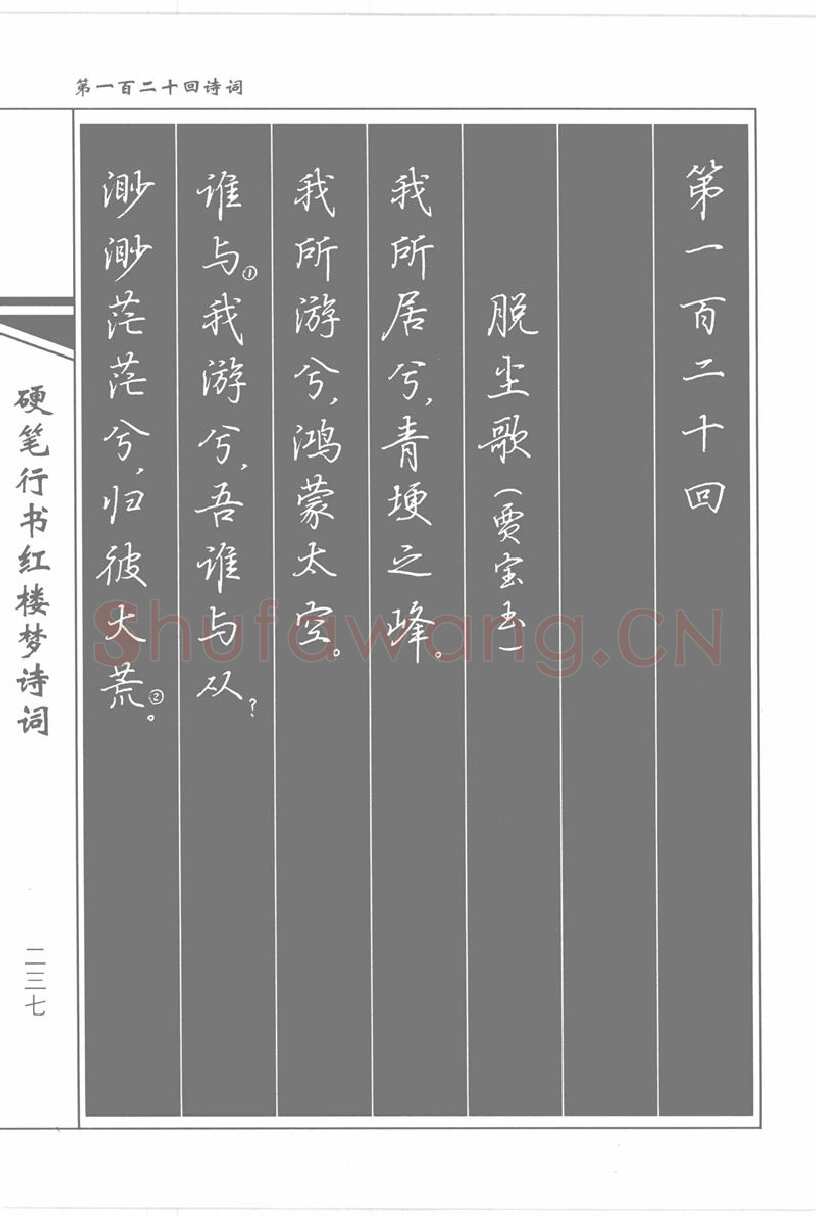 第一百二十回诗词
第一百二十回
脱尘歌(贾宝玉)
我所居兮,青埂之峰。
我所游兮,鸿蒙太空。
谁与①我游兮,吾谁与从?
渺渺茫茫兮,归彼大荒②。
硬笔行书红楼梦诗词
二三七
Shufawang.CN